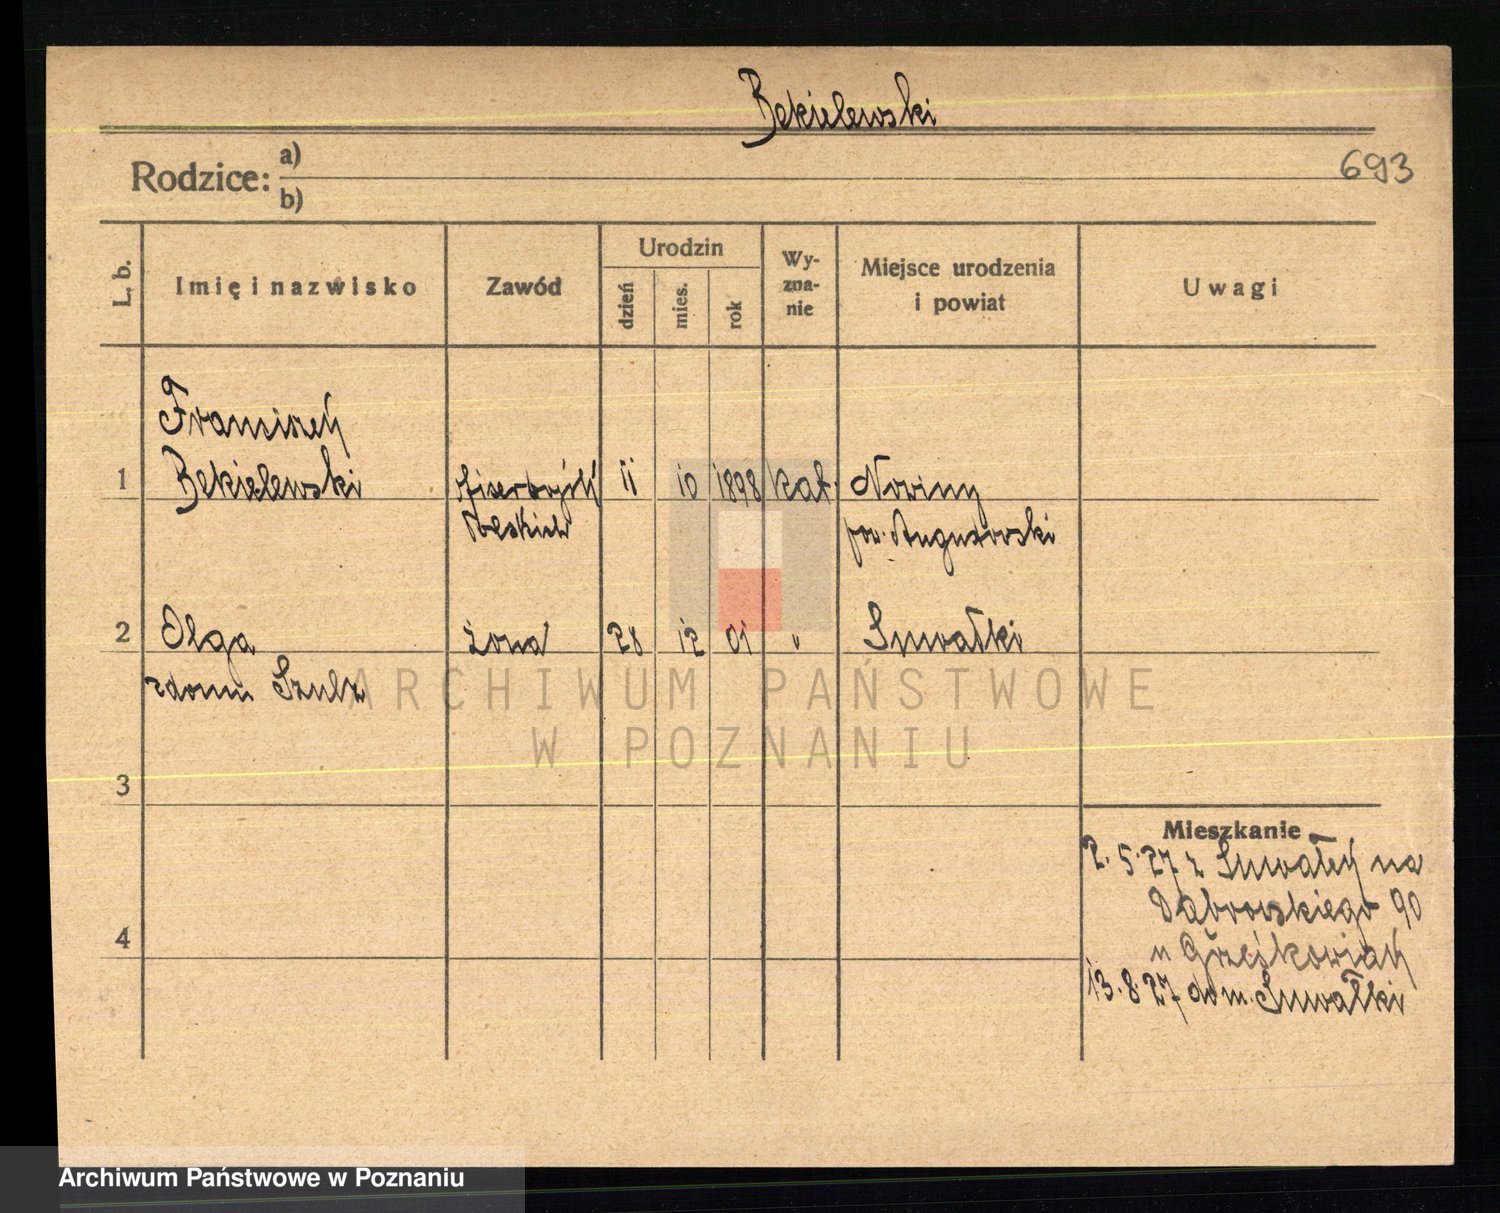 Bękielewski
693
Rodzice: a)
b)
L. b.
Imię i nazwisko
Zawód
Urodzin
dzień
mies.
rok
Wy-
zna-
nie
Miejsce urodzenia
i powiat
Uwagi
Franciszek
1 Bekielewski oficer wojsk 11 10 1898 kat. Nowiny
Polskich pow. Augustowski
2 Olga żona 28 12 01 " Suwałki
zdomu Szulz
ARCHIWUM PAŃSTWOWE
W POZNANIU
3
Mieszkanie
2.5.27 z Suwałek na
Dąbrowskiego 90
4
u Grześkowiak
13.8.27 do m. Suwałki
Archiwum Państwowe w Poznaniu